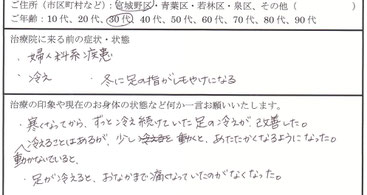 ご住所（市区町村など）：宮城野区・青葉区・若林区・泉区、その他（　　）
ご年齢：10 代、20 代、30 代、40 代、50 代、60 代、70 代、80 代、90 代
治療院に来る前の症状・状態
・婦人科系疾患
・冷え　・冬に足の指がしもやけになる
治療の印象や現在のお身体の状態など何か一言お願いいたします。
・寒くなってから、ずっと冷え続けていた足の冷えが、改善した。
冷えることはあるが、少し動くと、あたたかくなるようになった。
動かないでいると、
・足が冷えると、おなかまで痛くなっていたのがなくなった。